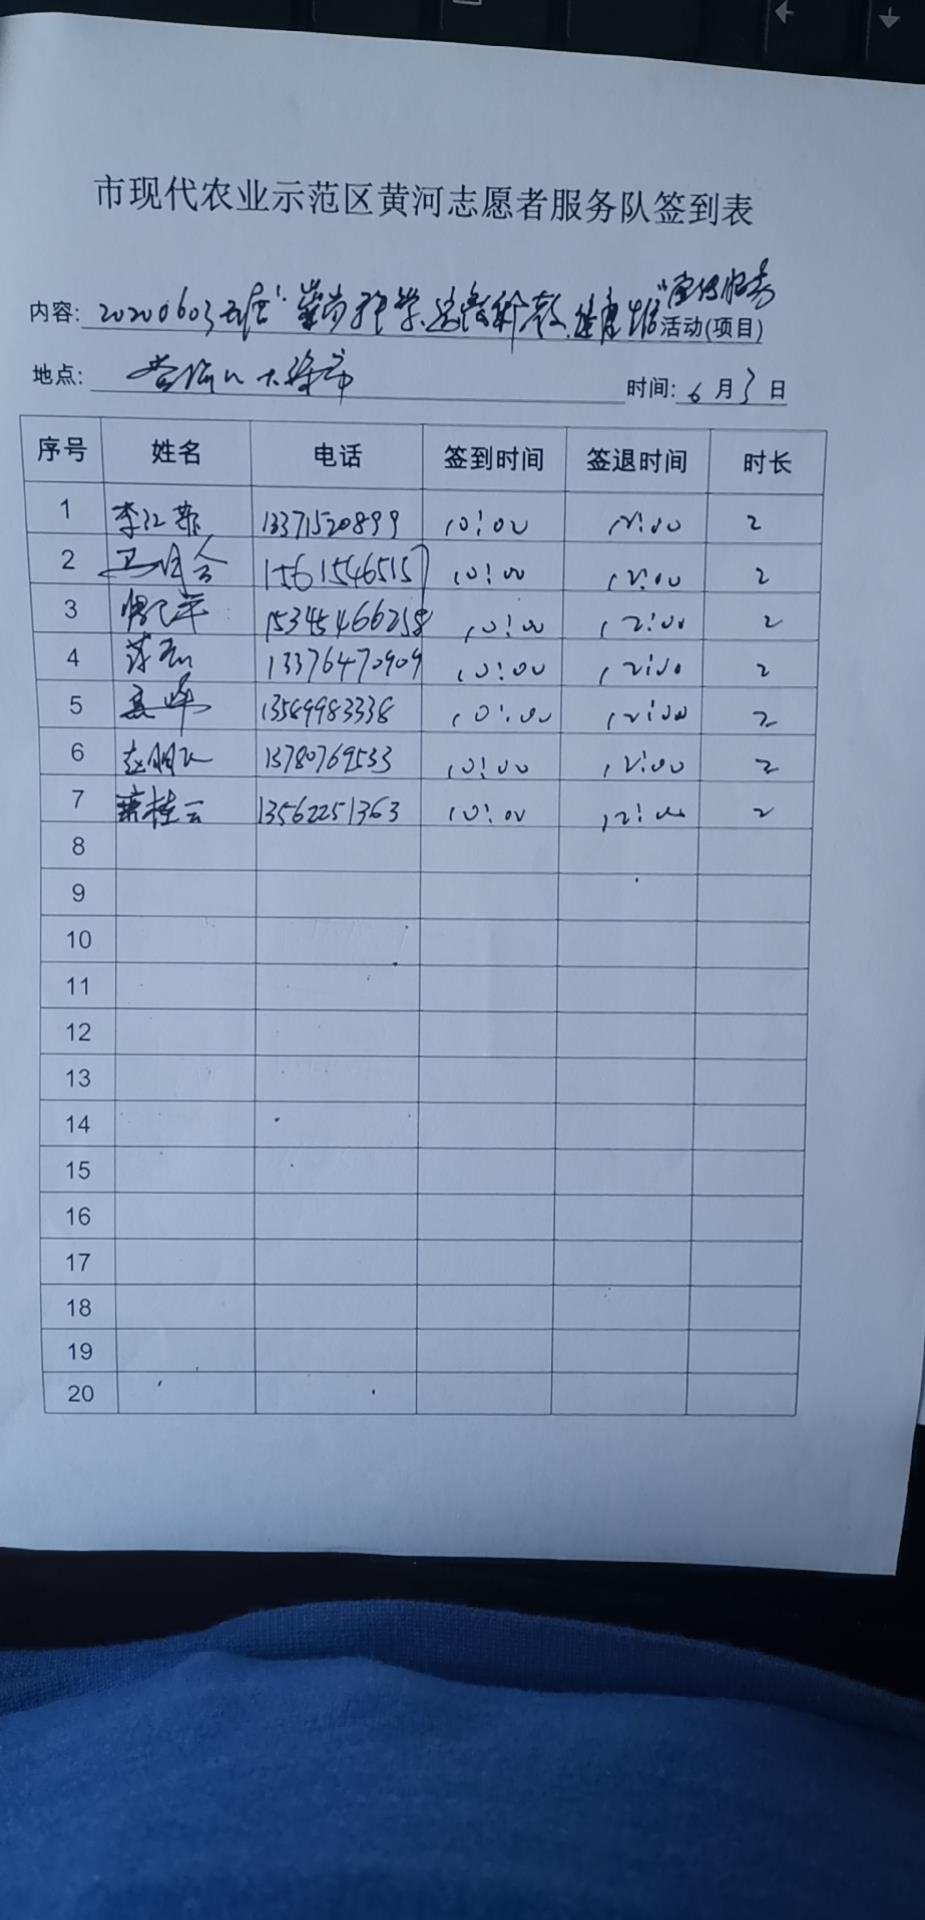 市现代农业示范区黄河志愿者服务队签到表
内容: 20200603 "崇尚科学、 健康 "宣传服务 活动(项目)
地点: 黄河口大 时间: 6 月 3 日
序号 姓名 电话 签到时间 签退时间 时长
1 李江 13371520899 10:00 12:00 2
2 15615465157 10:00 12:00 2
3 15345466258 10:00 12:00 2
4 13376470909 10:00 12:00 2
5 高峰 13589983338 10:00 12:00 2
6 赵明 13780769533 10:00 12:00 2
7 桂云 13562251363 10:00 12:00 2
8
9
10
11
12
13
14
15
16
17
18
19
20